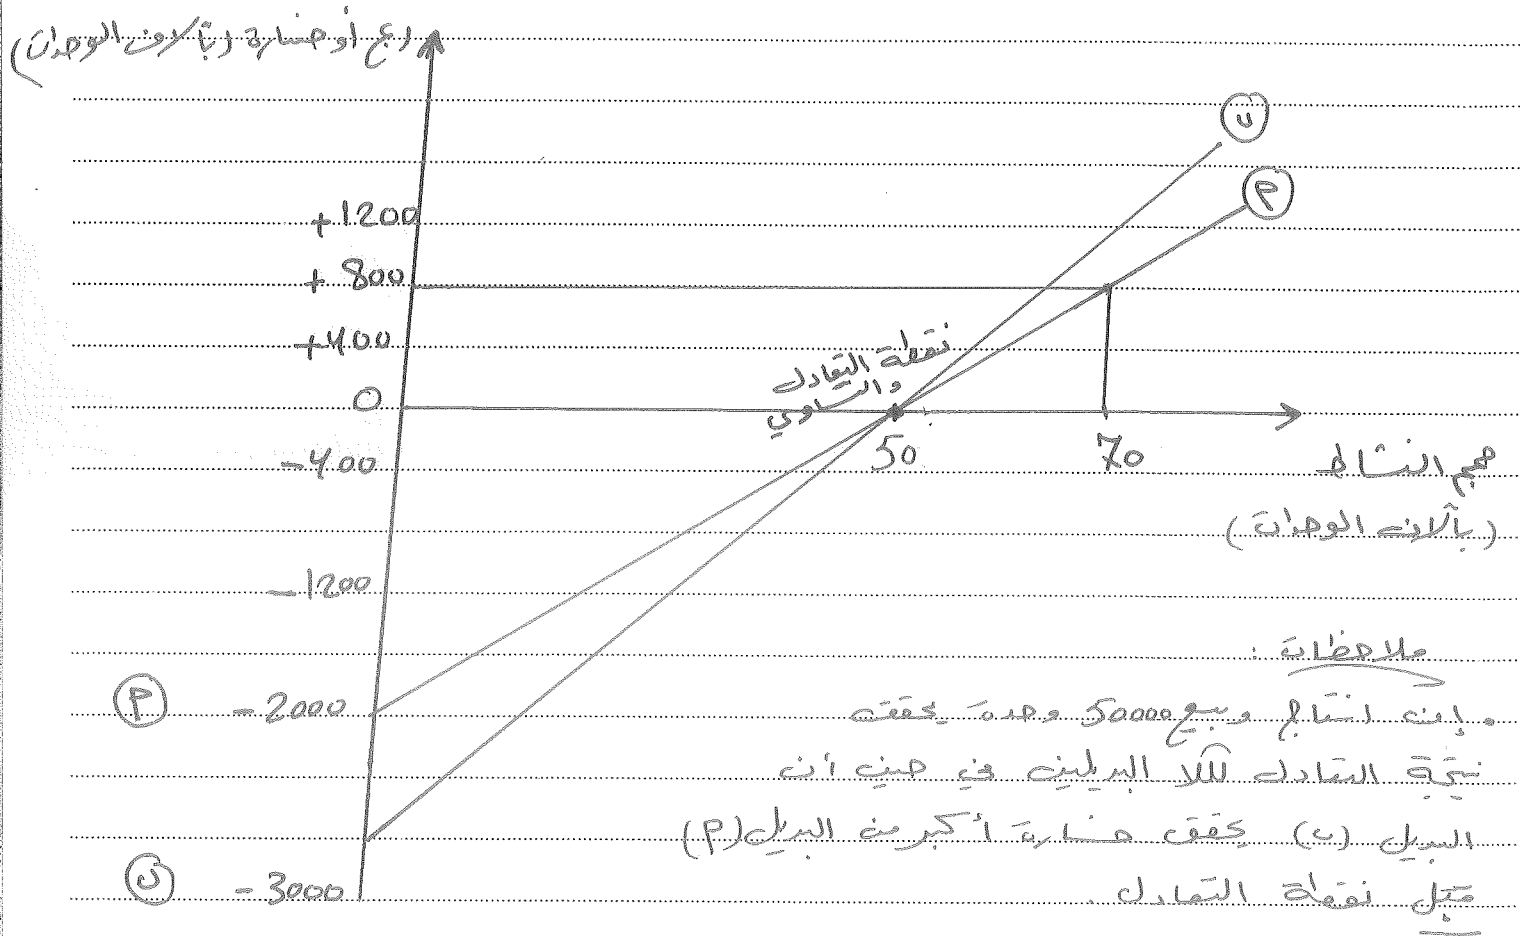 ربح أو خسارة (بآلاف الوحدات)
ن
م
+1200
+ 800
+400
نقطة التعادل
والتساوي
0
50
70
-400
حجم النشاط
(بآلاف الوحدات)
-1200
ملاحظات :
م
-2000
. إن انتاج وبيع 50000 وحدة يحقق
نتيجة التعادل لكلا البديلين في حين أن
البديل (ن) يحقق خسارة أكبر من البديل (م)
ن
-3000
قبل نقطة التعادل .